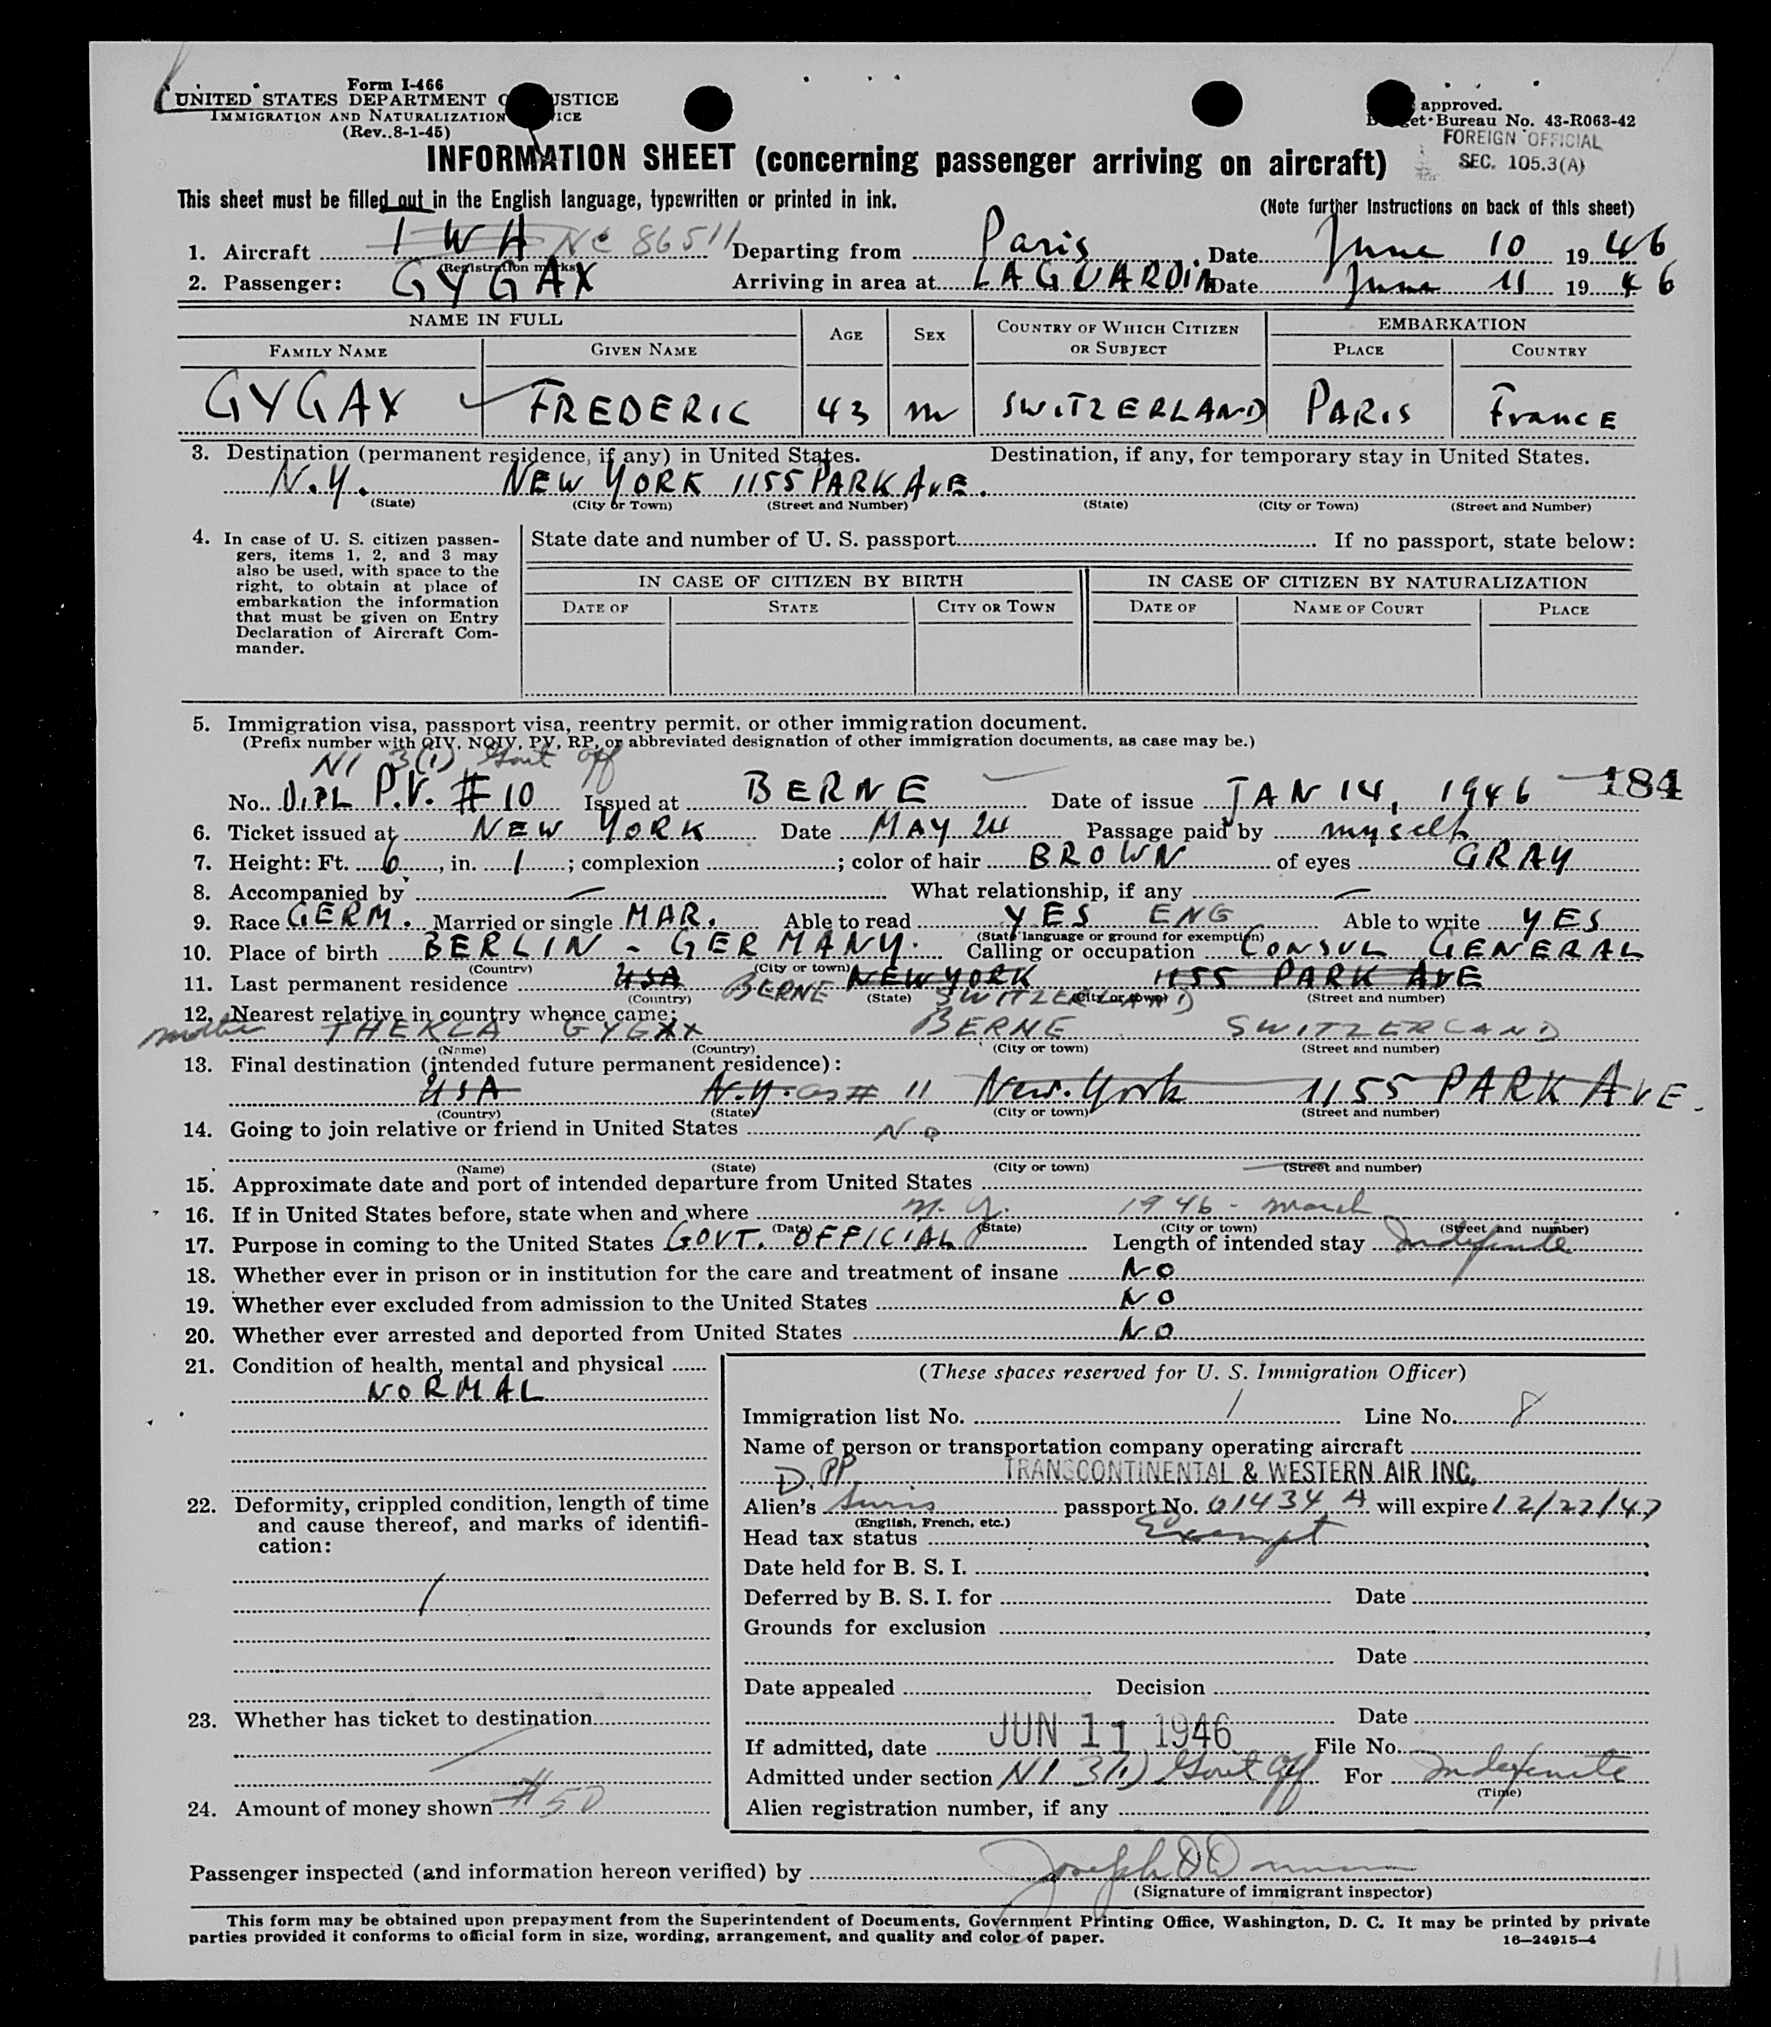 Form I-466
UNITED STATES DEPARTMENT OF JUSTICE
IMMIGRATION AND NATURALIZATION SERVICE
(Rev. 8-1-45)
approved.
Budget Bureau No. 43-R063-42
FOREIGN OFFICIAL
SEC. 105.3(A)
INFORMATION SHEET (concerning passenger arriving on aircraft)
This sheet must be filled out in the English language, typewritten or printed in ink.
(Note further Instructions on back of this sheet)
1. Aircraft TWA NC 86511 Departing from Paris Date June 10 1946
(Registration marks)
2. Passenger: GYGAX Arriving in area at LAGUARDIA Date June 11 1946
NAME IN FULL AGE SEX COUNTRY OF WHICH CITIZEN OR SUBJECT EMBARKATION
FAMILY NAME GIVEN NAME PLACE COUNTRY
GYGAX FREDERIC 43 M SWITZERLAND PARIS France
3. Destination (permanent residence, if any) in United States. Destination, if any, for temporary stay in United States.
N.Y. NEW YORK 1155 PARK AVE.
(State) (City or Town) (Street and Number) (State) (City or Town) (Street and Number)
4. In case of U. S. citizen passengers, items 1, 2, and 3 may also be used, with space to the right, to obtain at place of embarkation the information that must be given on Entry Declaration of Aircraft Commander.
State date and number of U. S. passport If no passport, state below:
IN CASE OF CITIZEN BY BIRTH IN CASE OF CITIZEN BY NATURALIZATION
DATE OF STATE CITY OR TOWN DATE OF NAME OF COURT PLACE
5. Immigration visa, passport visa, reentry permit, or other immigration document.
(Prefix number with QIV, NQIV, PV, RP, or abbreviated designation of other immigration documents, as case may be.)
NI 3(1) Govt Off
No. DIPL P.V. # 10 Issued at BERNE Date of issue JAN 14, 1946 184
6. Ticket issued at NEW YORK Date MAY 24 Passage paid by myself
7. Height: Ft. 6, in. 1; complexion ; color of hair BROWN of eyes GRAY
8. Accompanied by — What relationship, if any —
9. Race GERM. Married or single MAR. Able to read YES ENG Able to write YES
(State language or ground for exemption)
10. Place of birth BERLIN - GERMANY. Calling or occupation CONSUL GENERAL
(Country) (City or town)
11. Last permanent residence USA NEW YORK 1155 PARK AVE
BERNE SWITZERLAND
(Country) (State) (City or town) (Street and number)
12. Nearest relative in country whence came:
mother THEKLA GYGAX BERNE SWITZERLAND
(Name) (Country) (City or town) (Street and number)
13. Final destination (intended future permanent residence):
USA N.Y. as # 11 New York 1155 PARK AVE.
(Country) (State) (City or town) (Street and number)
14. Going to join relative or friend in United States No
(Name) (State) (City or town) (Street and number)
15. Approximate date and port of intended departure from United States
16. If in United States before, state when and where N.Y. 1946 - March
(Date) (State) (City or town) (Street and number)
17. Purpose in coming to the United States GOVT. OFFICIAL Length of intended stay Indefinite
18. Whether ever in prison or in institution for the care and treatment of insane NO
19. Whether ever excluded from admission to the United States NO
20. Whether ever arrested and deported from United States NO
21. Condition of health, mental and physical
NORMAL
22. Deformity, crippled condition, length of time and cause thereof, and marks of identification:
23. Whether has ticket to destination
24. Amount of money shown $50
(These spaces reserved for U. S. Immigration Officer)
Immigration list No. 1 Line No. 8
Name of person or transportation company operating aircraft
TRANSCONTINENTAL & WESTERN AIR INC.
D.PP.
Alien's Swiss passport No. 01434 A will expire 12/22/47
(English, French, etc.)
Head tax status Exempt
Date held for B. S. I.
Deferred by B. S. I. for Date
Grounds for exclusion
Date
Date appealed Decision
Date
If admitted, date JUN 11 1946 File No.
Admitted under section NI 3(1) Govt Off For Indefinite
(Time)
Alien registration number, if any
Passenger inspected (and information hereon verified) by
(Signature of immigrant inspector)
This form may be obtained upon prepayment from the Superintendent of Documents, Government Printing Office, Washington, D. C. It may be printed by private
parties provided it conforms to official form in size, wording, arrangement, and quality and color of paper.
16—24915-4
11